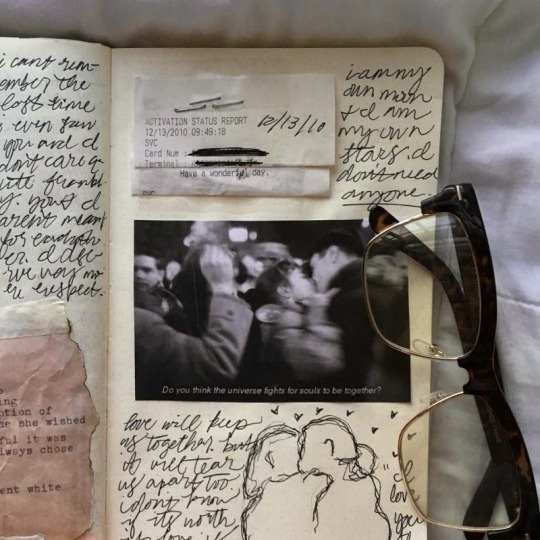 i cant rem-
ember the
last time
i even saw
you and i
dont care
quite frankl-
y. you & i
arent meant
for each oth-
er. i dese-
rve way mo-
re respect.
ing
ption of
me she wished
ful it was
always chose
ent white
ACTIVATION STATUS REPORT
12/13/2010 09:49:18
12/13/10
SVC
Card Num :
Terminal
Have a wonderful day.
SVC
i am my
own moon
& i am
my own
stars. i
dont need
anyone.
Do you think the universe fights for souls to be together?
love will keep
us together, but
it will tear
us apart too.
i dont know
if its worth
"i
love
you